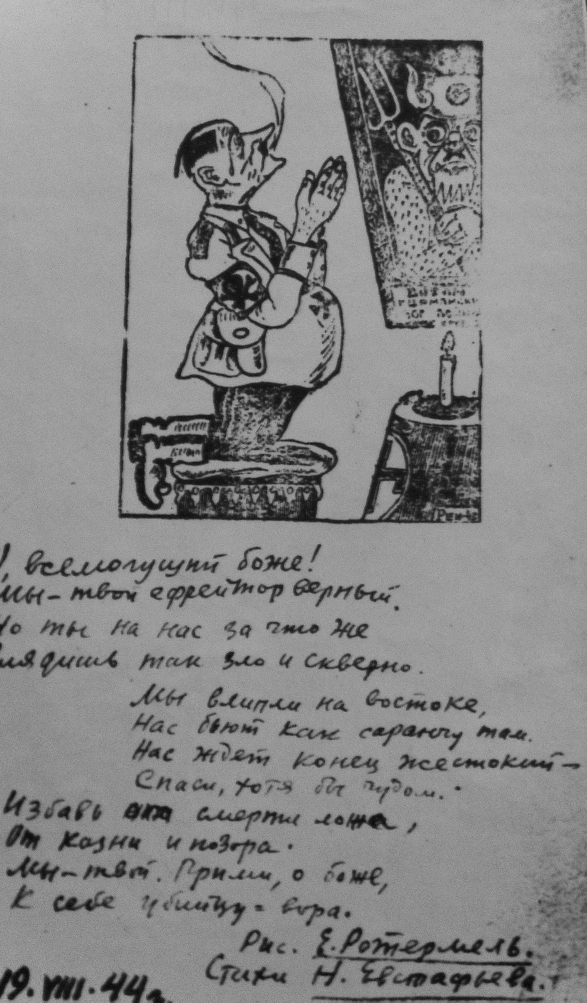 ВОТАН
О, всемогущий боже!
Мы – твой ефрейтор верный.
Но ты на нас за что же
Глядишь так зло и скверно.
Мы влипли на востоке,
Нас бьют как саранчу там.
Нас ждет конец жестокий –
Спаси, хотя бы чудом.
Избавь смерти ложа,
От казни и позора.
Мы – твой. Прими, о боже,
К себе убийцу - вора.
Рис. Е. Ротермель.
Стихи Н. Евстафьева.
19. VIII. 44 г.